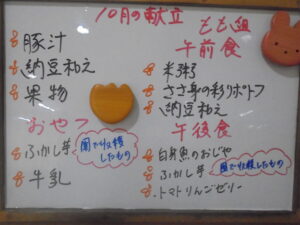 10月の献立
豚汁
納豆和え
果物
おやつ
ふかし芋
園で収穫したもの
牛乳
もも組
午前食
米粥
ささ身の彩りポトフ
納豆和え
午後食
白身魚のおじや
ふかし芋
園で収穫したもの
トマトりんごゼリー